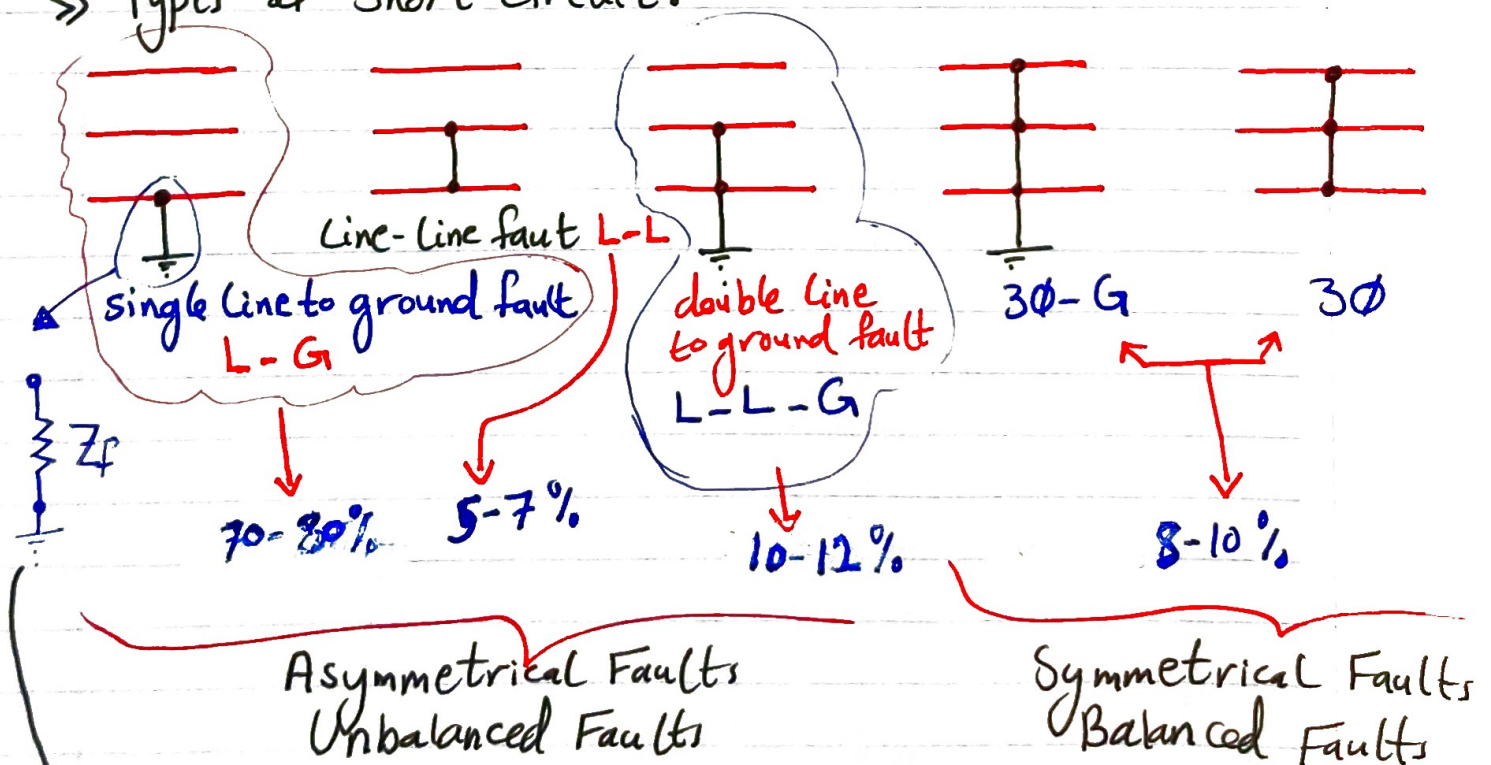 >> Types of Short Circuit:
Line-Line faut L-L
single line to ground fault
L-G
double line
to ground fault
L-L-G
3Ø-G
3Ø
Zf
70-80%
5-7%
10-12%
8-10%
Asymmetrical Faults
Unbalanced Faults
Symmetrical Faults
Balanced Faults